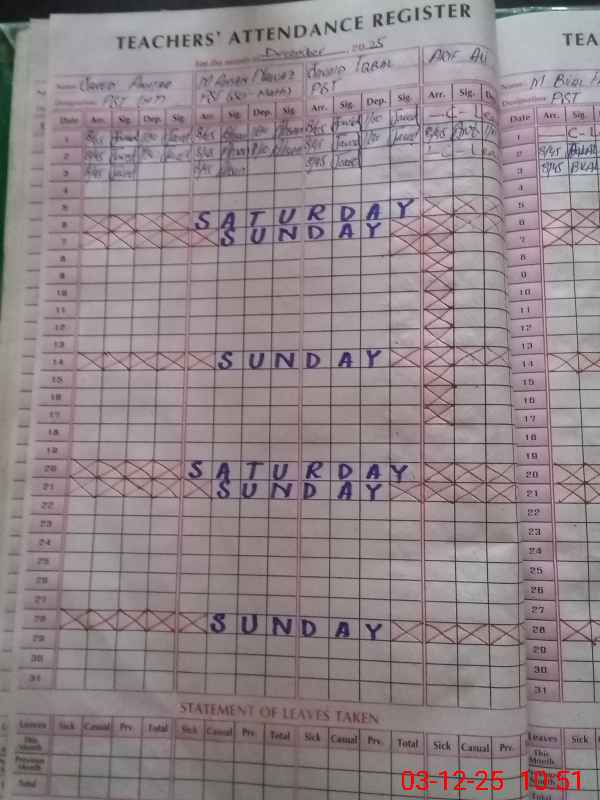 TEACHERS' ATTENDANCE REGISTER
TEA
For the month of December 2025
Name Javed Iqbal Arif Ali Name M
Designation PST PST Designation PST
Date Arr. Sig. Dep. Sig. Arr. Sig. Dep. Sig. Arr. Sig. Dep. Sig. Arr. Sig. Dep. Sig. Date Arr. Sig.
1 8/45 8/45 8/45 Javed 1/30 Javed - C - Lea 1 - C - L
2 8/45 8/45 8/45 Javed 1/30 Javed 8/45 2 8/45
3 8/45 Javed 8/45 8/45 Javed - C - Lea 3 8/45
4 4
5 5
6 SATURDAY 6
7 SUNDAY 7
8 8
9 9
10 10
11 11
12 12
13 13
14 SUNDAY 14
15 15
16 16
17 17
18 18
19 19
20 SATURDAY 20
21 SUNDAY 21
22 22
23 23
24 24
25 25
26 26
27 27
28 SUNDAY 28
29 29
30 30
31 31
STATEMENT OF LEAVES TAKEN
Leaves Sick Casual Prv. Total Sick Casual Prv. Total Sick Casual Prv. Total Sick Casual Prv. Leaves Sick Ca
This Month This Month
Previous Month Previous Month
Total Total
03-12-25 10:51